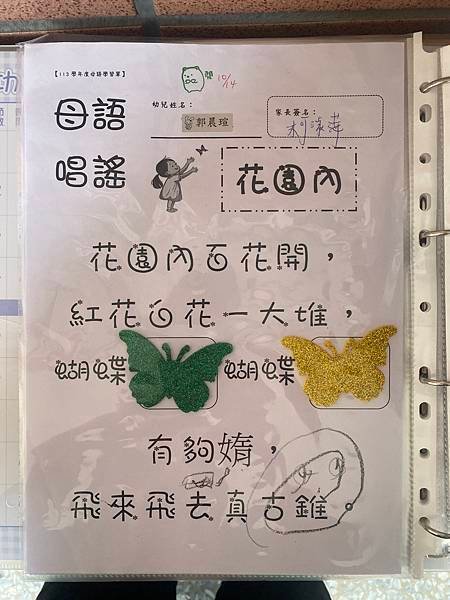 【113 學年度母語學習單】
閱 10/14
幼兒姓名：
郭晨瑄
家長簽名：
母語
唱謠
花園內
花園內百花開，
紅花白花一大堆，
蝴蝶 蝴蝶
有夠媠，
飛來飛去真古錐。